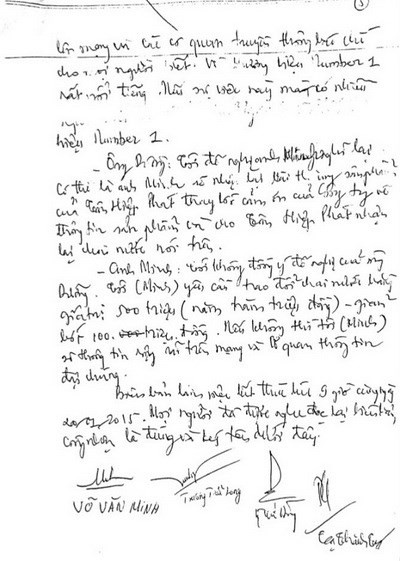 lên mạng và các cơ quan truyền thông báo chí
cho mọi người biết. Vì thương hiệu Number 1
rất nổi tiếng. Nếu sự việc này mà có nhiều
hiệu Number 1.
- Ông Dũng: Tôi đề nghị anh Minh nghĩ lại
Có thể là anh Minh sẽ nhận
của Tân Hiệp Phát thay lời cảm ơn của Công ty về
thông tin sản phẩm và cho Tân Hiệp Phát nhận
lại chai nước nói trên.
- Anh Minh: Tôi không đồng ý đề nghị của ông
Dũng. Tôi (Minh) yêu cầu trao đổi chai nước bằng
giá trị 500 triệu (năm trăm triệu đồng) - giảm
bớt 100. triệu đồng. Nếu không thì tôi (Minh)
sẽ thông tin này lên trên mạng và cơ quan thông tin
đại chúng.
Biên bản làm việc kết thúc lúc 9 giờ cùng ngày
2015. Mọi người đã được nghe đọc lại biên bản
công nhận là đúng và ký tên dưới đây.
VÕ VĂN MINH